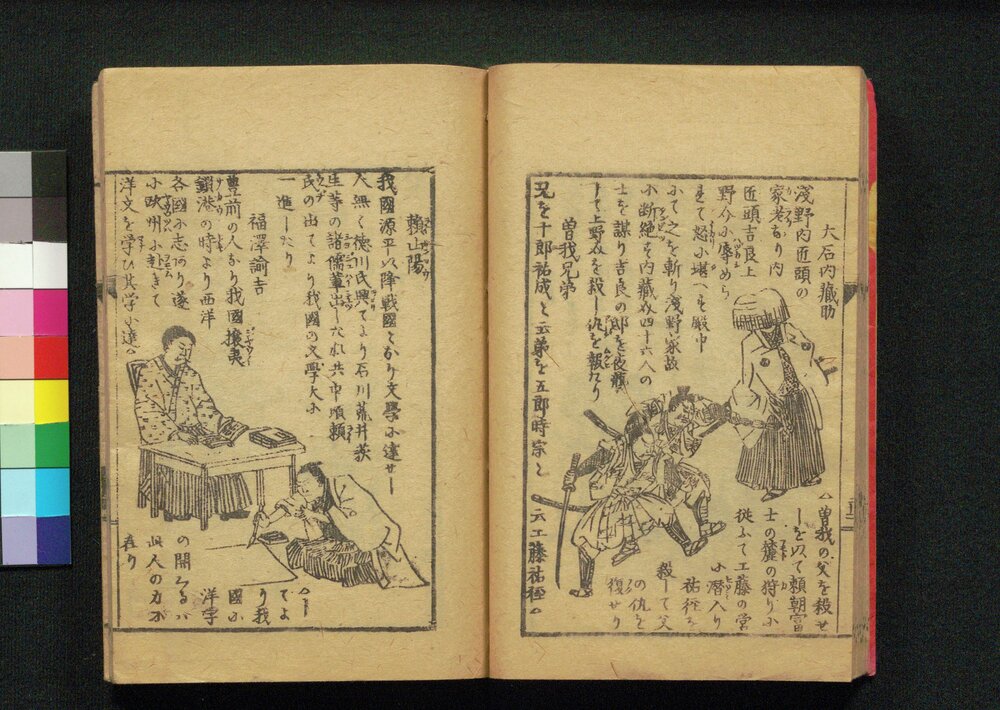 大石内藏助
淺野内匠頭の
家老なり内
匠頭吉良上
野介に辱めら
れて怒に堪へず殿中
にて之を斬り淺野家故
に断絶す内藏助四十六人の
士を謀り吉良の邸を夜襲
して上野介を殺し仇を報たり
曽我兄弟
兄を十郎祐成と云弟を五郎時宗と云工藤祐経
曽我の父を殺せ
しを以て頼朝富
士の麓の狩りに
従ふて工藤の営
に潜入り
祐経を
殺して父
の仇を
復せり
頼山陽
我國源平以降戦國となり文學に達せし
人無く徳川氏興てより石川荒井荻
生等の諸儒輩出したれ共中頃頼
氏の出てより我國の文學大に
一進したり
福澤諭吉
豊前の人なり我國攘夷
鎖港の時より西洋
各國に志あり遂
に欧州に赴きて
洋文を学び其学に達
してよ
り我
國に
洋学
の開くるハ
此人の力が
在り